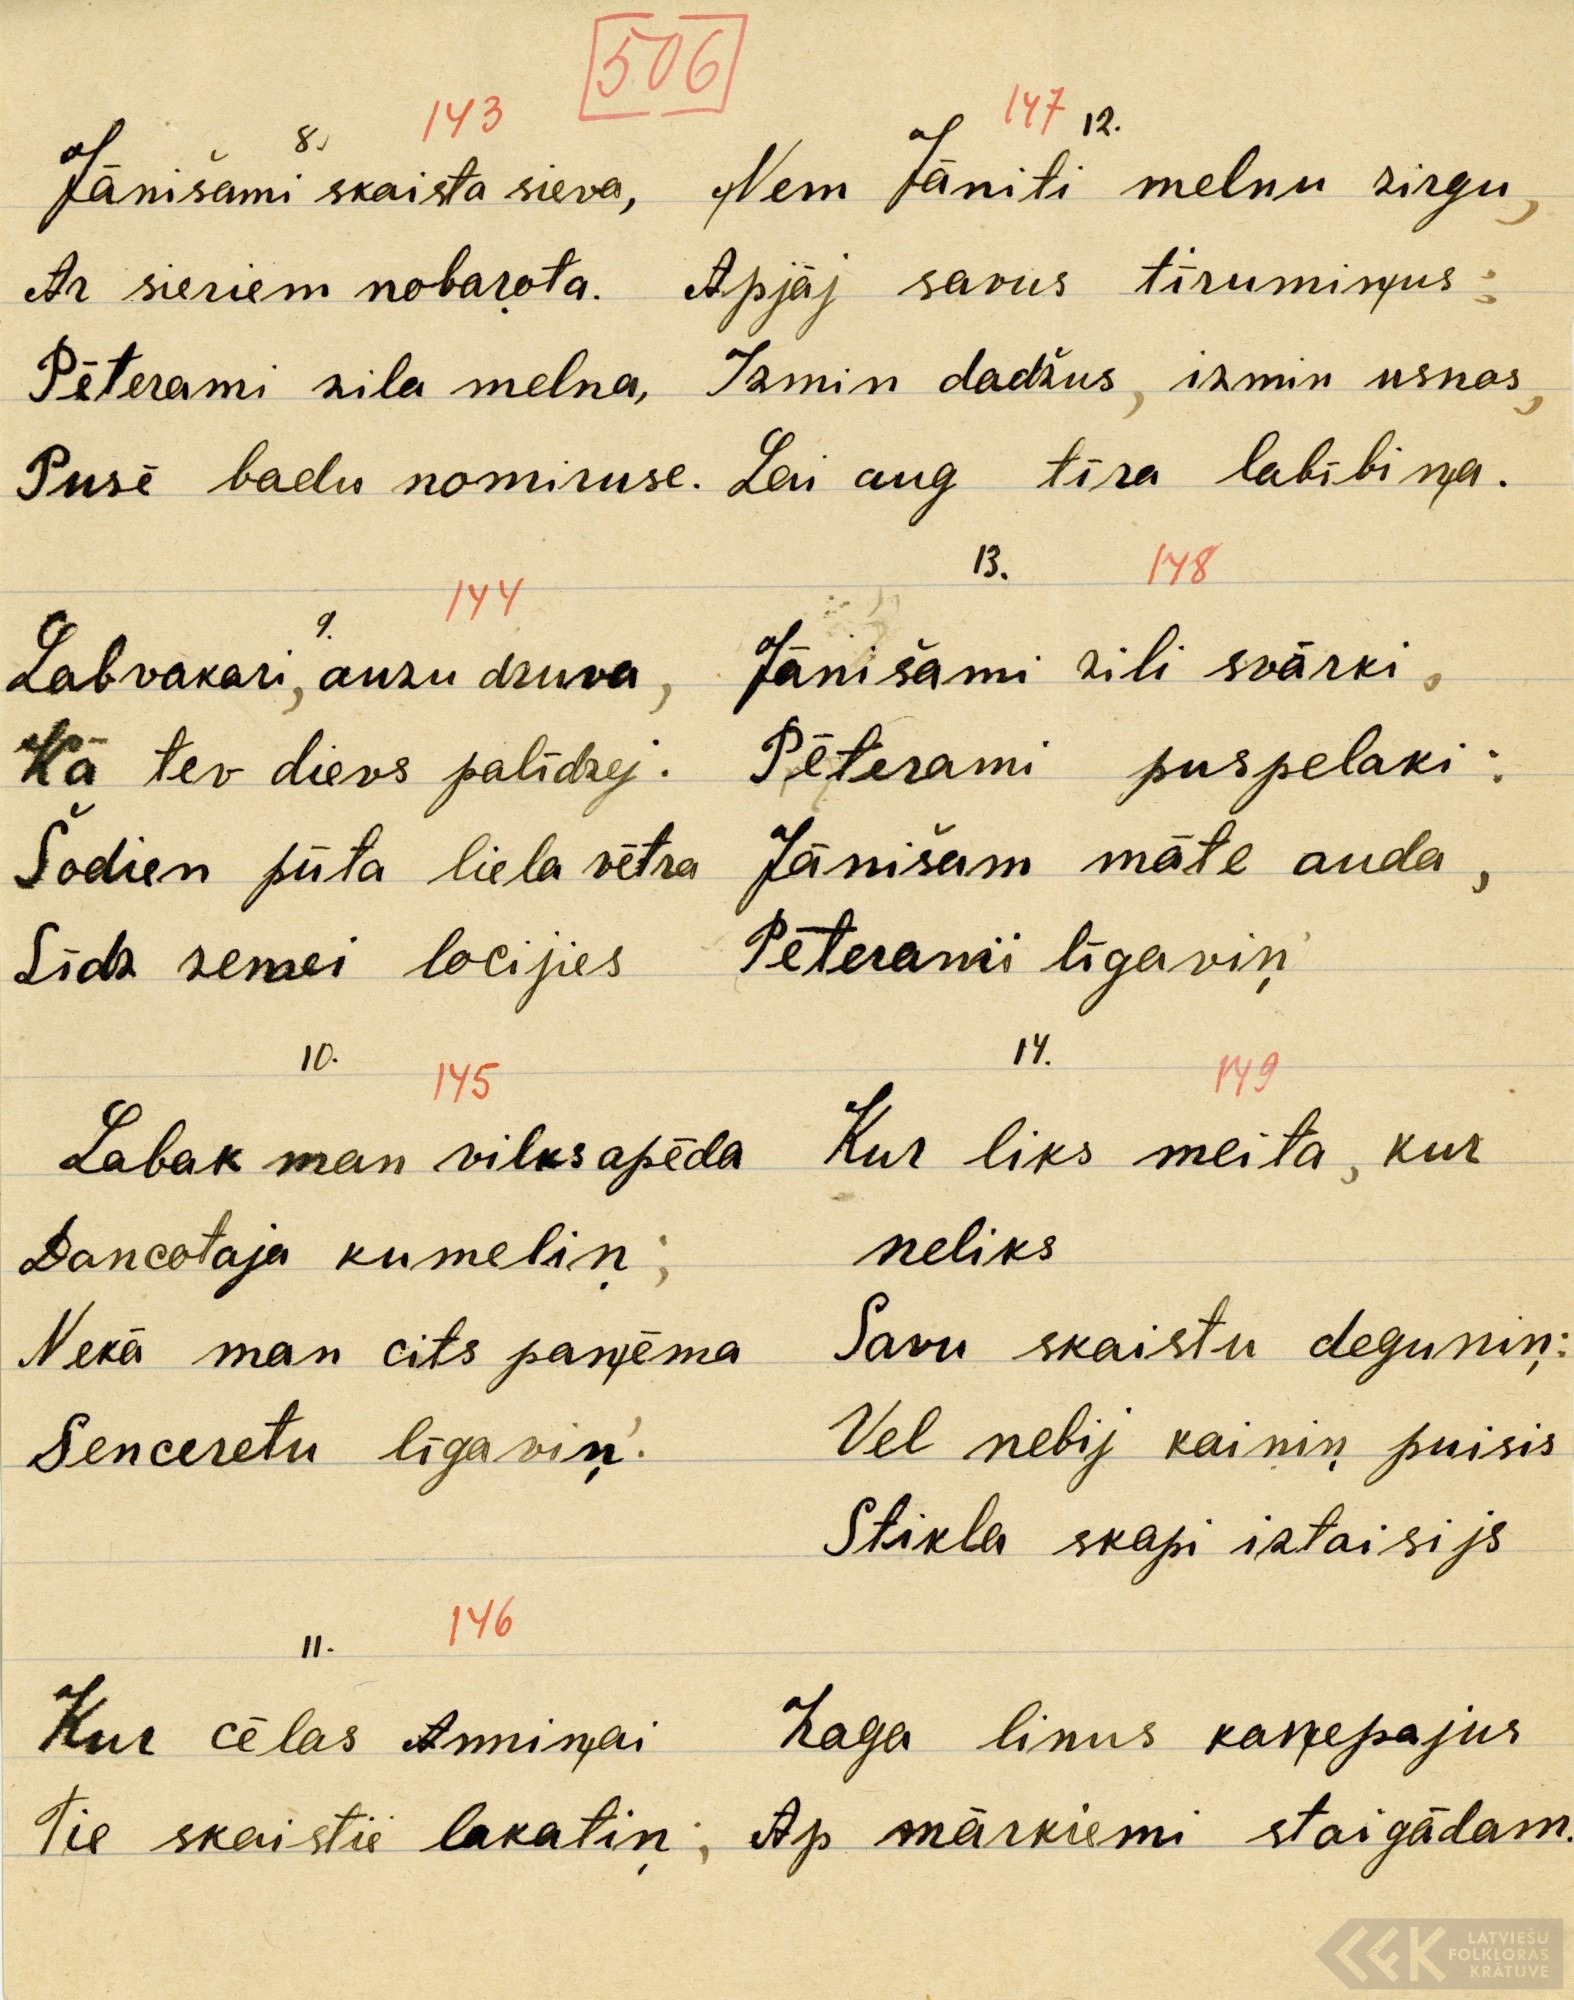 506
8. 143
Jānišami skaista sieva,
Ar sieriem nobaŗota.
Pēterami zila melna,
Pusē badu nomiruse.
9. 144
Labvakari, auzu druva,
Kā tev dievs palīdzej.
Šodien pūta liela vētra
Līdz zemei locijies
10. 145
Labak man vilks apēda
Dancotaja kumeliņ;
Nekā man cits paņēma
Senceretu līgaviņ'.
11. 146
Kur cēlas Anniņai
Tie skaistie lakatiņ;
147 12.
Ņem Jāniti melnu zirgu,
Apjāj savus tīrumiņus:
Izmin dadžus, izmin usnas,
Lai aug tīra labībiņa.
13. 148
Jānišami zili svārki,
Pēterami puspelaki:
Jānišam māte auda,
Pēterami līgaviņ'
14. 149
Kur liks meita, kur
neliks
Savu skaistu deguniņ:
Vel nebij kaiņiņ puisis
Stikla skapi iztaisijs
Zaga linus kaņepajus
Ap mārkiemi staigādam.
LATVIEŠU
FOLKLORAS
KRĀTUVE